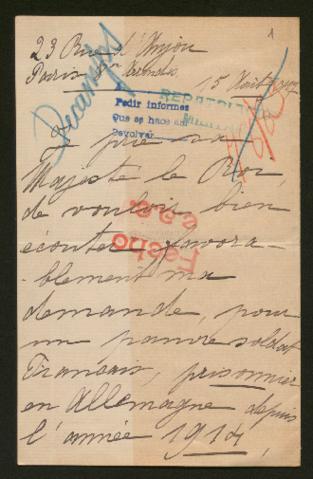 1
23 Rue d'Anjou
Paris
15 Août
Pedir informes
Que se hace así
Devolver
REPATRI
MILITAR
Je prie sa
Majesté le Roi,
de vouloir bien
écouter favora-
-blement ma
demande, pour
un pauvre soldat
Français, prisonnier
en Allemagne depuis
l'année 1914,